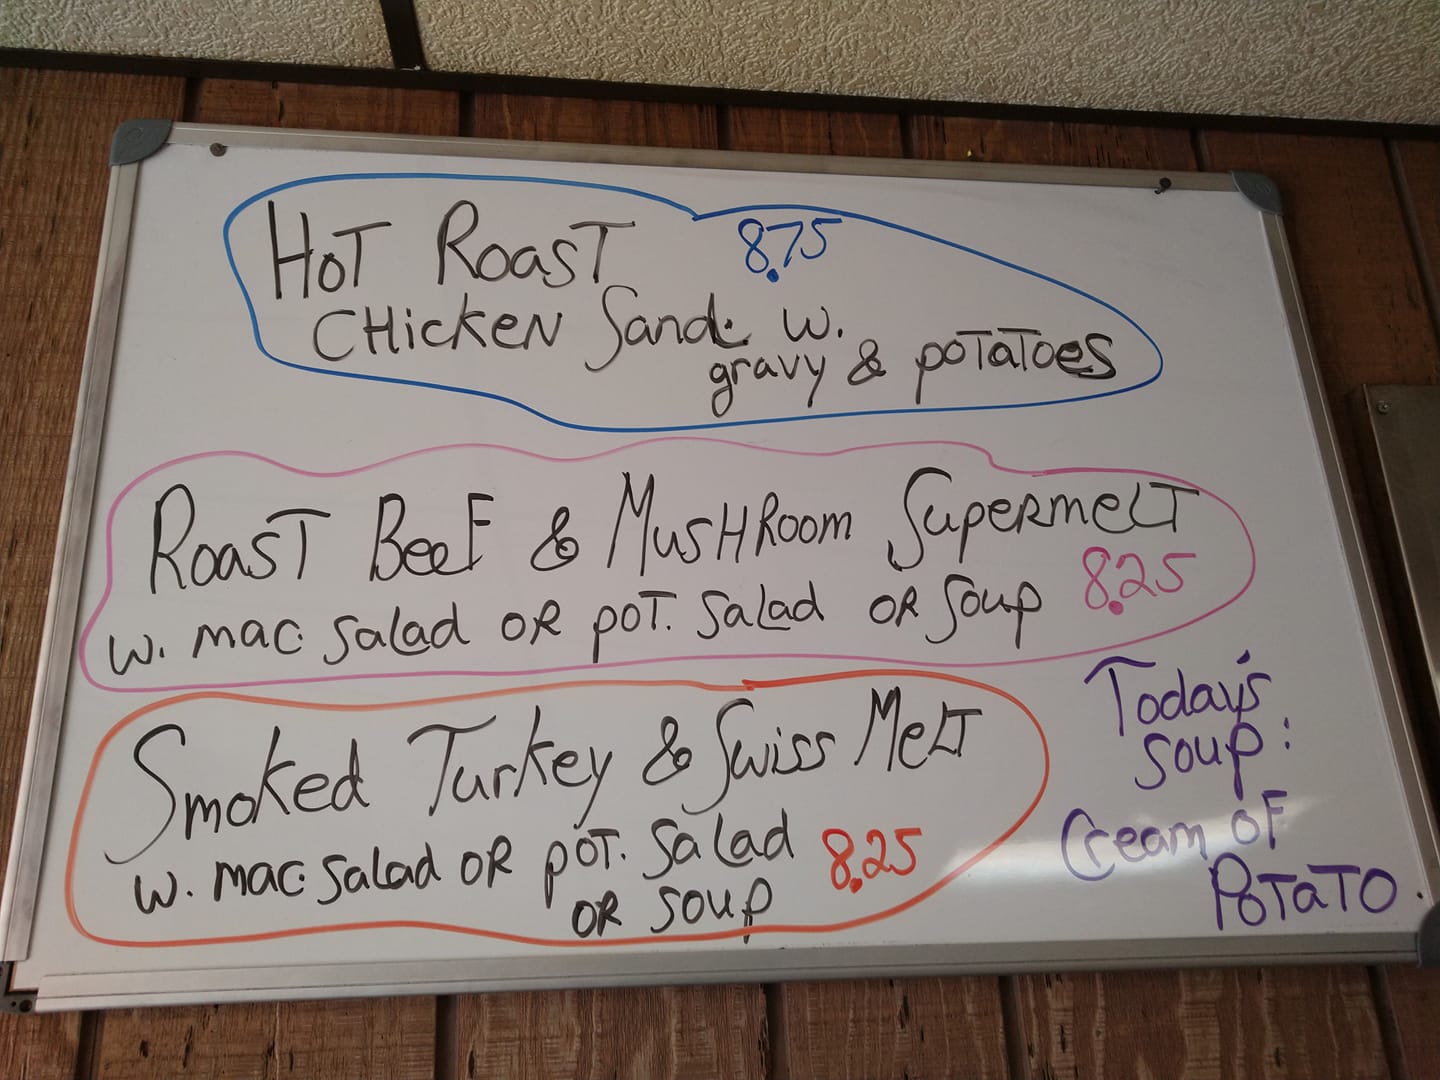 HOT ROAST 8.75
CHICKEN Sand. w.
gravy & POTATOES
ROAST BEEF & MUSHROOM SUPERMELT
w. mac. Salad OR POT. Salad OR Soup 8.25
Smoked Turkey & Swiss MELT
w. mac. Salad OR POT. Salad 8.25
OR soup
Today's
soup:
Cream OF
POTATO.